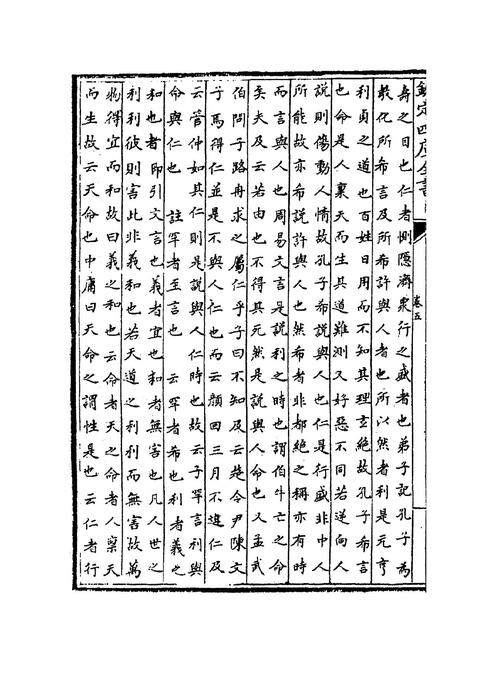 欽定四庫全書
卷五
壽之目也仁者惻隱濟衆行之盛者也弟子記孔子為
教化所希言及所希許與人者也所以然者利是元亨
利貞之道也百姓日用而不知其理玄絶故孔子希言
也命是人稟天而生其道難測又好惡不同若逆向人
說則傷動人情故孔子希說與人也仁是行盛非中人
所能故亦希說許與人也然希者非都絶之稱亦有時
而言與人也周易文言是說利之時也謂伯牛亡之命
矣夫及云若由也不得其死然是說與人命也又孟武
伯問子路冉求之屬仁乎子曰不知及云楚令尹陳文
子焉得仁並是不與人仁也而云顔回三月不違仁及
云管仲如其仁則是說與人仁時也故云子罕言利與
命與仁也　註罕者至言也　云罕者希也利者義之
和也者即引文言也義者宜也和者無害也凡人世之
利利彼則害此非義和也若天道之利利而無害故萬
物得宜而和故曰義之和也云命者天之命者人稟天
而生故云天命也中庸曰天命之謂性是也云仁者行